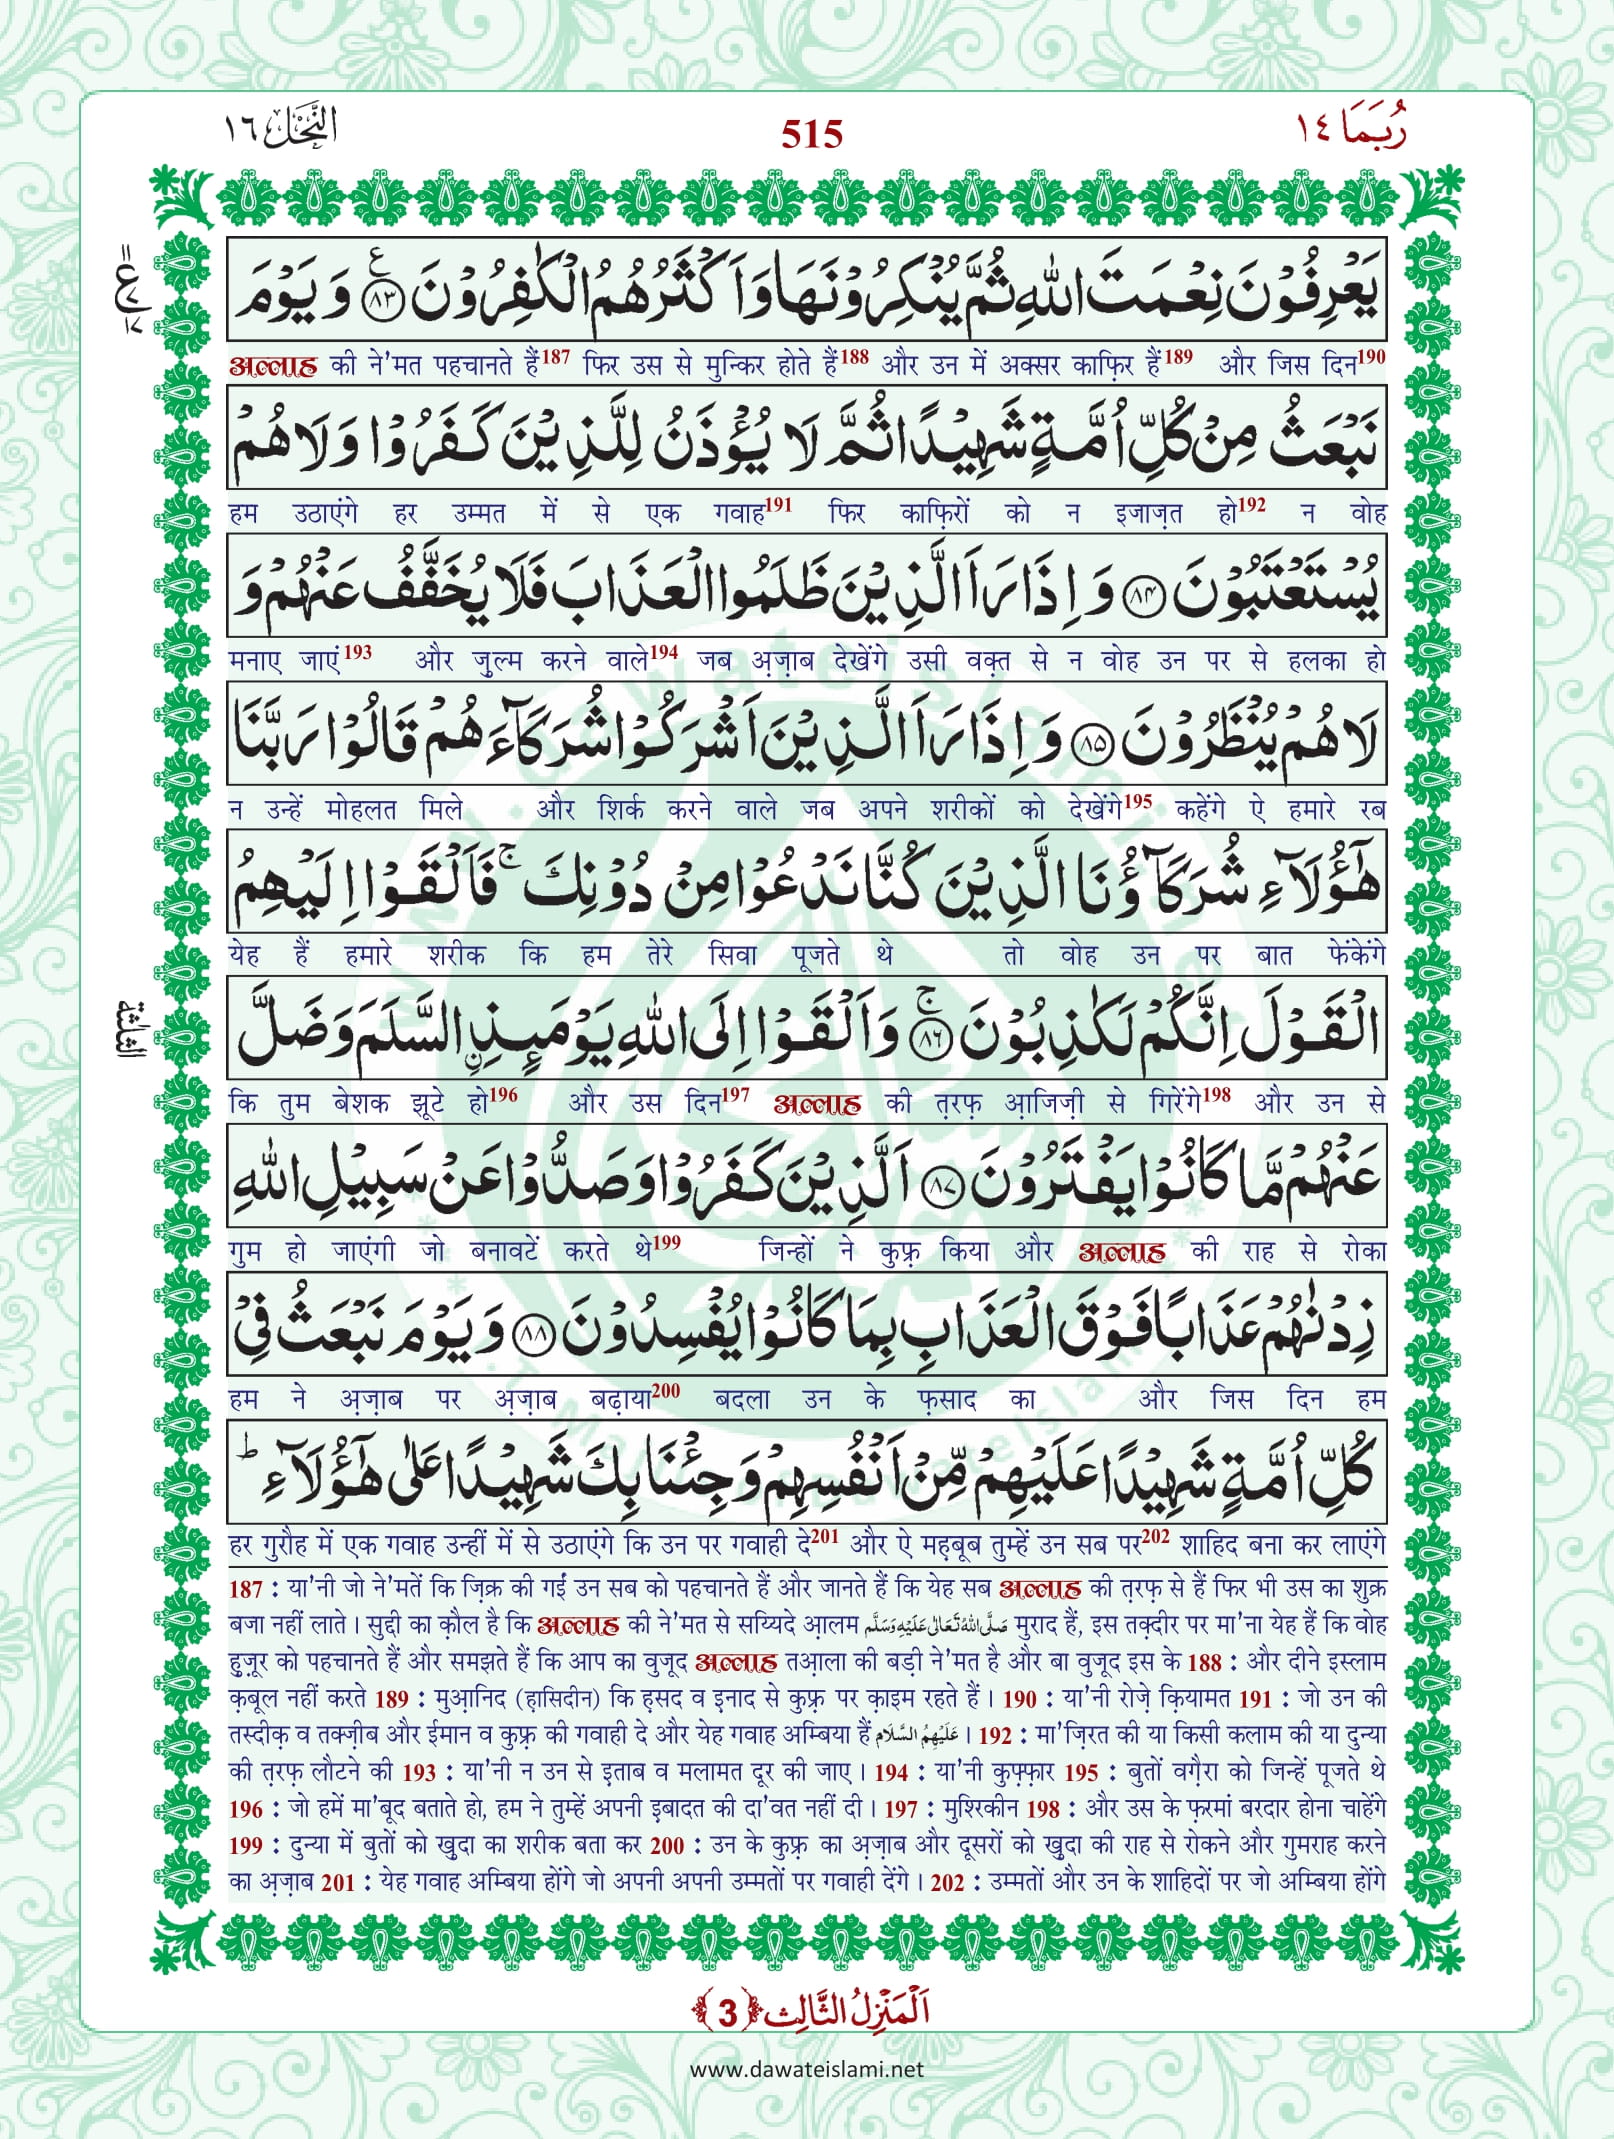 النَّحْل ١٦
515
رُبَمَا ١٤
يَعْرِفُوْنَ نِعْمَتَ اللّٰهِ ثُمَّ يُنْكِرُوْنَهَا وَ اَكْثَرُهُمُ الْكٰفِرُوْنَ ﴿۸۳﴾ وَ يَوْمَ
अल्लाह की ने'मत पहचानते हैं187 फिर उस से मुन्किर होते हैं188 और उन में अक्सर काफ़िर हैं189 और जिस दिन190
نَبْعَثُ مِنْ كُلِّ اُمَّةٍ شَهِیْدًا ثُمَّ لَا یُؤْذَنُ لِلَّذِیْنَ كَفَرُوْا وَ لَا هُمْ
हम उठाएंगे हर उम्मत में से एक गवाह191 फिर काफ़िरों को न इजाज़त हो192 न वोह
یُسْتَعْتَبُوْنَ ﴿۸۴﴾ وَ اِذَا رَاَ الَّذِیْنَ ظَلَمُوا الْعَذَابَ فَلَا یُخَفَّفُ عَنْهُمْ وَ
मनाए जाएं193 और ज़ुल्म करने वाले194 जब अ़ज़ाब देखेंगे उसी वक़्त से न वोह उन पर से हलका हो
لَا هُمْ یُنْظَرُوْنَ ﴿۸۵﴾ وَ اِذَا رَاَ الَّذِیْنَ اَشْرَكُوْا شُرَكَآءَهُمْ قَالُوْا رَبَّنَا
न उन्हें मोहलत मिले और शिर्क करने वाले जब अपने शरीकों को देखेंगे195 कहेंगे ऐ हमारे रब
هٰۤؤُلَآءِ شُرَكَآؤُنَا الَّذِیْنَ كُنَّا نَدْعُوْا مِنْ دُوْنِكَ ۚ فَاَلْقَوْا اِلَیْهِمُ
येह हैं हमारे शरीक कि हम तेरे सिवा पूजते थे तो वोह उन पर बात फेंकेंगे
الْقَوْلَ اِنَّكُمْ لَكٰذِبُوْنَ ﴿۸۶﴾ۚ وَ اَلْقَوْا اِلَى اللّٰهِ یَوْمَىٕذِ ﹰالسَّلَمَ وَ ضَلَّ
कि तुम बेशक झूटे हो196 और उस दिन197 अल्लाह की त़रफ़ आ़जिज़ी से गिरेंगे198 और उन से
عَنْهُمْ مَّا كَانُوْا یَفْتَرُوْنَ ﴿۸۷﴾ اَلَّذِیْنَ كَفَرُوْا وَ صَدُّوْا عَنْ سَبِیْلِ اللّٰهِ
गुम हो जाएंगी जो बनावटें करते थे199 जिन्हों ने कुफ़्र किया और अल्लाह की राह से रोका
زِدْنٰهُمْ عَذَابًا فَوْقَ الْعَذَابِ بِمَا كَانُوْا یُفْسِدُوْنَ ﴿۸۸﴾ وَ یَوْمَ نَبْعَثُ فِیْ
हम ने अ़ज़ाब पर अ़ज़ाब बढ़ाया200 बदला उन के फ़साद का और जिस दिन हम
كُلِّ اُمَّةٍ شَهِیْدًا عَلَیْهِمْ مِّنْ اَنْفُسِهِمْ وَ جِئْنَا بِكَ شَهِیْدًا عَلٰى هٰۤؤُلَآءِ ؕ
हर गुरौह में एक गवाह उन्हीं में से उठाएंगे कि उन पर गवाही दे201 और ऐ मह़बूब तुम्हें उन सब पर202 शाहिद बना कर लाएंगे
187 : या'नी जो ने'मतें कि ज़िक्र की गईं उन सब को पहचानते हैं और जानते हैं कि येह सब अल्लाह की त़रफ़ से हैं फिर भी उस का शुक्र
बजा नहीं लाते। सुद्दी का क़ौल है कि अल्लाह की ने'मत से सय्यिदे आ़लम صَلَّى اللّٰهُ تَعَالٰى عَلَيْهِ وَسَلَّم मुराद हैं, इस तक़्दीर पर मा'ना येह हैं कि वोह
हुज़ूर को पहचानते हैं और समझते हैं कि आप का वुजूद अल्लाह तआ़ला की बड़ी ने'मत है और बा वुजूद इस के 188 : और दीने इस्लाम
क़बूल नहीं करते 189 : मुआ़निद (ह़ासिदीन) कि ह़सद व इ़नाद से कुफ़्र पर क़ाइम रहते हैं। 190 : या'नी रोज़े क़ियामत 191 : जो उन की
तस्दीक़ व तक्ज़ीब और ईमान व कुफ़्र की गवाही दे और येह गवाह अम्बिया हैं عَلَيْهِمُ السَّلَام। 192 : मा'ज़िरत की या किसी कलाम की या दुन्या
की त़रफ़ लौटने की 193 : या'नी न उन से इताब व मलामत दूर की जाए। 194 : या'नी कुफ़्फ़ार 195 : बुतों वग़ैरा को जिन्हें पूजते थे
196 : जो हमें मा'बूद बताते हो, हम ने तुम्हें अपनी इबादत की दा'वत नहीं दी। 197 : मुश्रिकीन 198 : और उस के फ़रमां बरदार होना चाहेंगे
199 : दुन्या में बुतों को ख़ुदा का शरीक बता कर 200 : उन के कुफ़्र का अ़ज़ाब और दूसरों को ख़ुदा की राह से रोकने और गुमराह करने
का अ़ज़ाब 201 : येह गवाह अम्बिया होंगे जो अपनी अपनी उम्मतों पर गवाही देंगे। 202 : उम्मतों और उन के शाहिदों पर जो अम्बिया होंगे
اَلْمَنْزِلُ الثَّالِث ﴿3﴾
www.dawateislami.net